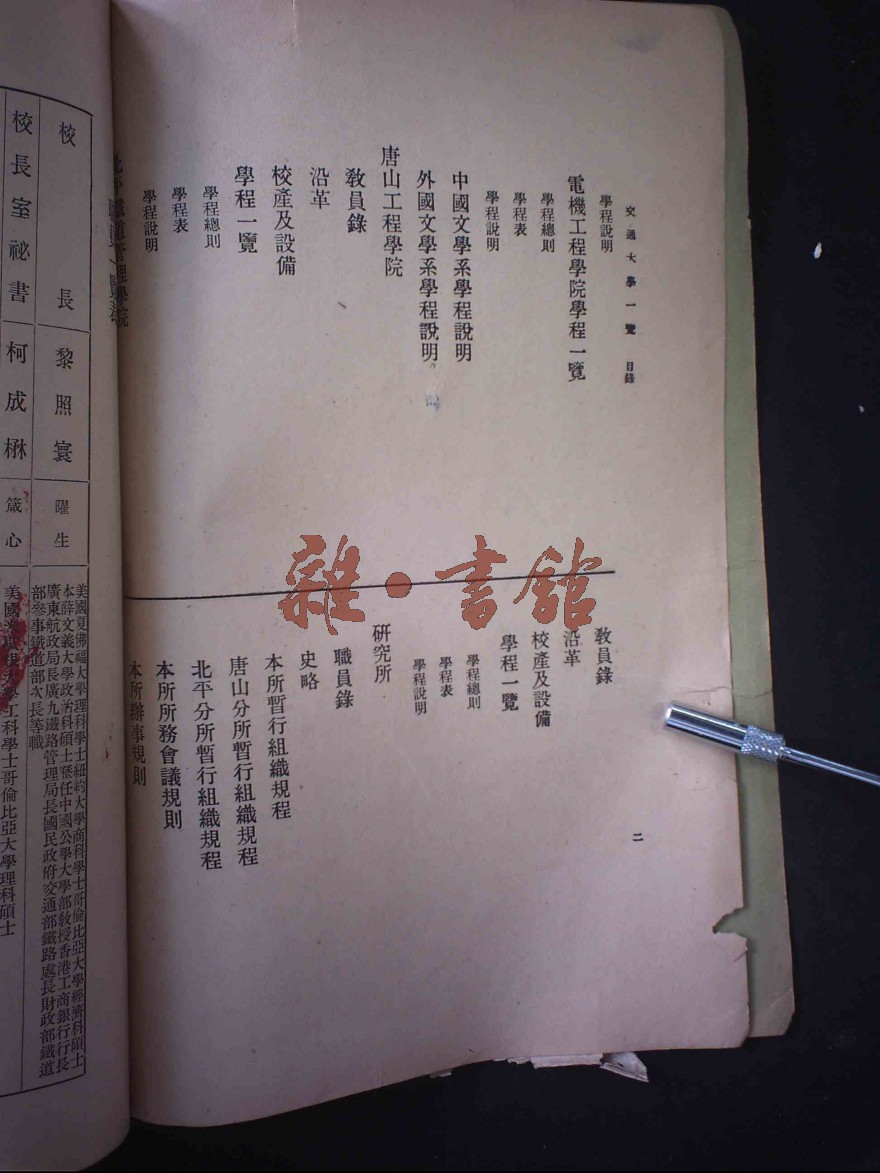 交通大學一覽 目錄
學程說明
電機工程學院學程一覽
學程總則
學程表
學程說明
中國文學系學程說明
外國文學系學程說明
唐山工程學院
教員錄
沿革
校產及設備
學程一覽
學程總則
學程表
學程說明
北平鐵道管理學院
教員錄
沿革
校產及設備
學程一覽
學程總則
學程表
學程說明
研究所
職員錄
史略
本所暫行組織規程
唐山分所暫行組織規程
北平分所暫行組織規程
本所所務會議規則
本所辦事規則
二
校長
黎照寰
曜生
美國夏佛福大學理科學士紐約大學商科學士哥倫比亞大學經濟科碩士
本薛文義大學政治科碩士歷任中國公學大學部教授香港工商銀行行長
廣東航政局長廣九鐵路管理局長國民政府交通部鐵路處長財政部鐵道
部參事鐵道部次長等職
校長室祕書
柯成楙
箴心
美國 大學工科學士哥倫比亞大學理科碩士
雜·書館